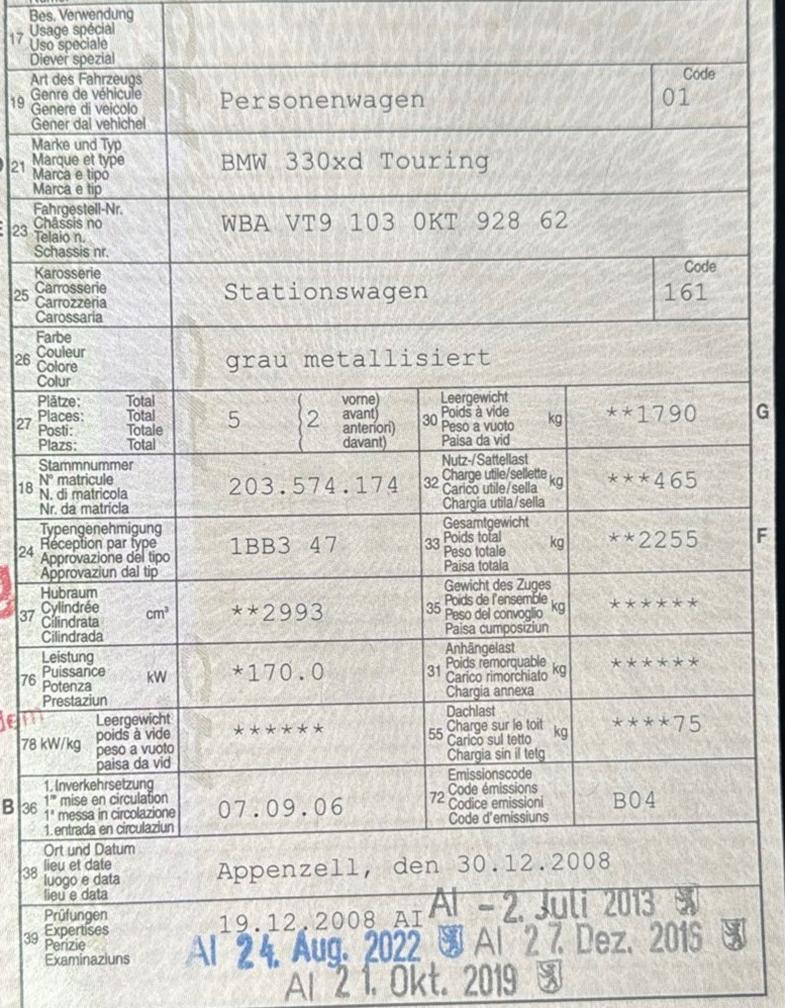 Bes. Verwendung
17 Usage spécial
Uso speciale
Diever spezial
Art des Fahrzeugs
19 Genre de véhicule
Genere di veicolo
Gener dal vehichel
Personenwagen
Code
01
Marke und Typ
21 Marque et type
Marca e tipo
Marca e tip
BMW 330xd Touring
Fahrgestell-Nr.
23 Châssis no
Telaio n.
Schassis nr.
WBA VT9 103 0KT 928 62
Karosserie
25 Carrosserie
Carrozzeria
Carossaria
Stationswagen
Code
161
Farbe
26 Couleur
Colore
Colur
grau metallisiert
Plätze: Total
27 Places: Total
Posti: Totale
Plazs: Total
5 ( 2 vorne)
avant)
anteriori)
davant)
Leergewicht
30 Poids à vide kg
Peso a vuoto
Paisa da vid
**1790
G
Stammnummer
18 N° matricule
N. di matricola
Nr. da matricla
203.574.174
Nutz-/Sattellast
32 Charge utile/sellette kg
Carico utile/sella
Chargia utila/sella
***465
Typengenehmigung
24 Réception par type
Approvazione del tipo
Approvaziun dal tip
1BB3 47
Gesamtgewicht
33 Poids total kg
Peso totale
Paisa totala
**2255
F
Hubraum
37 Cylindrée cm³
Cilindrata
Cilindrada
**2993
Gewicht des Zuges
35 Poids de l'ensemble kg
Peso del convoglio
Paisa cumposiziun
******
Leistung
76 Puissance kW
Potenza
Prestaziun
*170.0
Anhängelast
31 Poids remorquable kg
Carico rimorchiato
Chargia annexa
******
Leergewicht
78 kW/kg poids à vide
peso a vuoto
paisa da vid
******
Dachlast
55 Charge sur le toit kg
Carico sul tetto
Chargia sin il tetg
****75
B
1. Inverkehrsetzung
36 1re mise en circulation
1a messa in circolazione
1. entrada en circulaziun
07.09.06
Emissionscode
72 Code émissions
Codice emissioni
Code d'emissiuns
B04
Ort und Datum
38 lieu et date
luogo e data
lieu e data
Appenzell, den 30.12.2008
Prüfungen
39 Expertises
Perizie
Examinaziuns
19.12.2008 AI
AI - 2. Juli 2013
AI 24. Aug. 2022
AI 27. Dez. 2016
AI 21. Okt. 2019